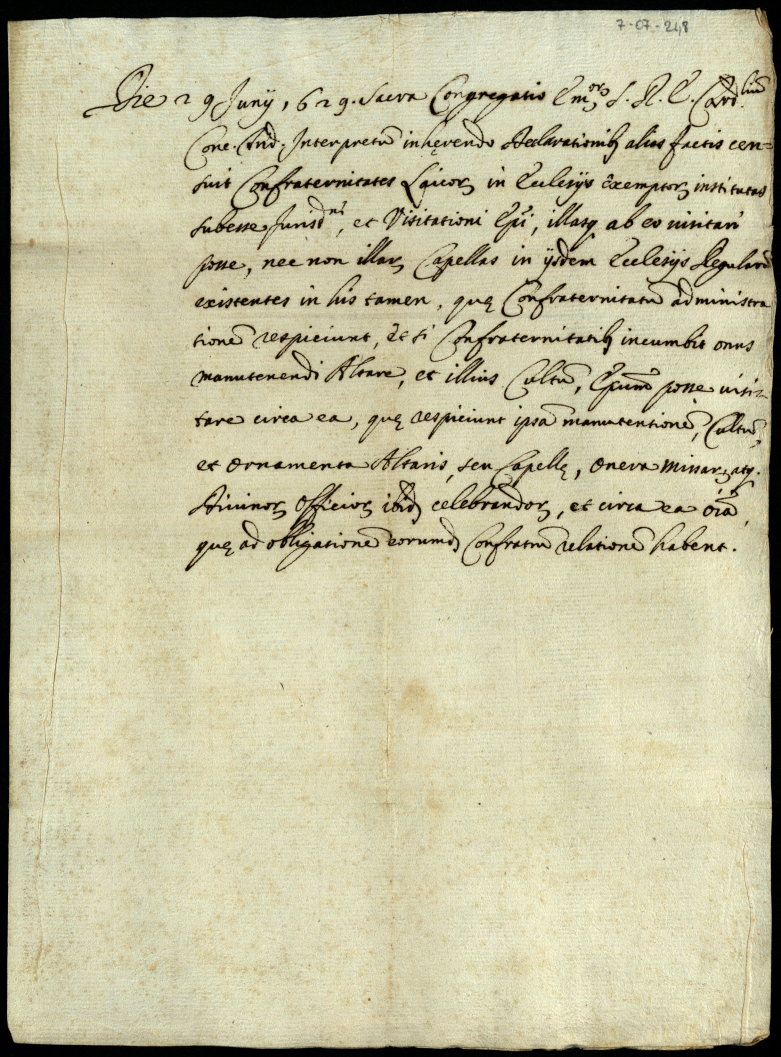 7-07-248
Die 29 Junij 1629. Sacra Congregatio Em.^orꝝ S. R. E. Card^lium
Conc. Trid. Interpretũ inhęrendo declarationibꝫ alias factis cen=
suit Confraternitates Laicorꝝ in Ecclesijs exemptorꝝ institutas
subesse Jurisd^ni, et Visitationi Epĩ, illasq ab eo uisitari
posse, nec non illarꝝ Capellas in ijsdem Ecclesijs Regulariũ
existentes in his tamen, quę Confraternitatũ administra
tionẽ respiciunt, Et si Confraternitatibꝫ incumbit onus
manutenendi Altare, et illius Cultũ, Epũm posse uisi=
tare circa ea, quę respiciunt ipsã manutentionẽ, Cultũ,
et Ornamenta Altaris, seu Capellę, onera missarꝝ atq.
diuinorꝝ officiorꝝ ibid celebrandorꝝ, et circa ea oĩa,
quę ad obligationẽ eorumd Confratrũ relationẽ habent.